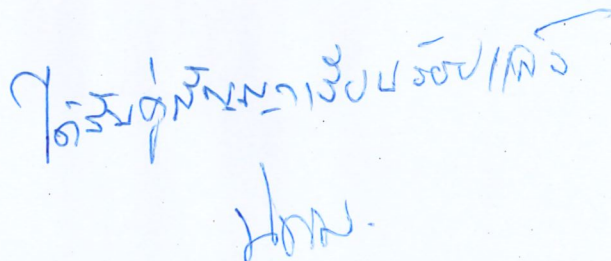 ได้รับคู่สัญญาเรียบร้อยแล้ว